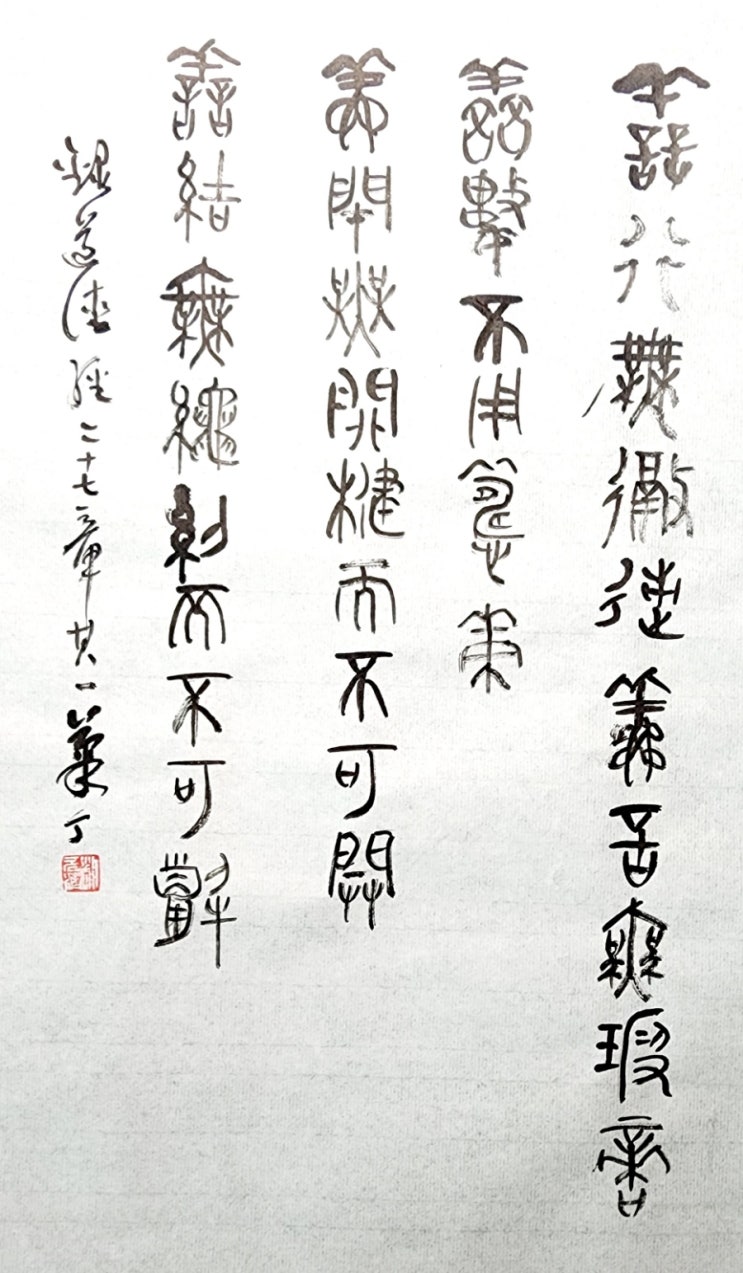 善行無徹迹善言無瑕啻
善數不用策
善閉無關楗而不可開
善結無繩約而不可解
錄道德經二十七章其一